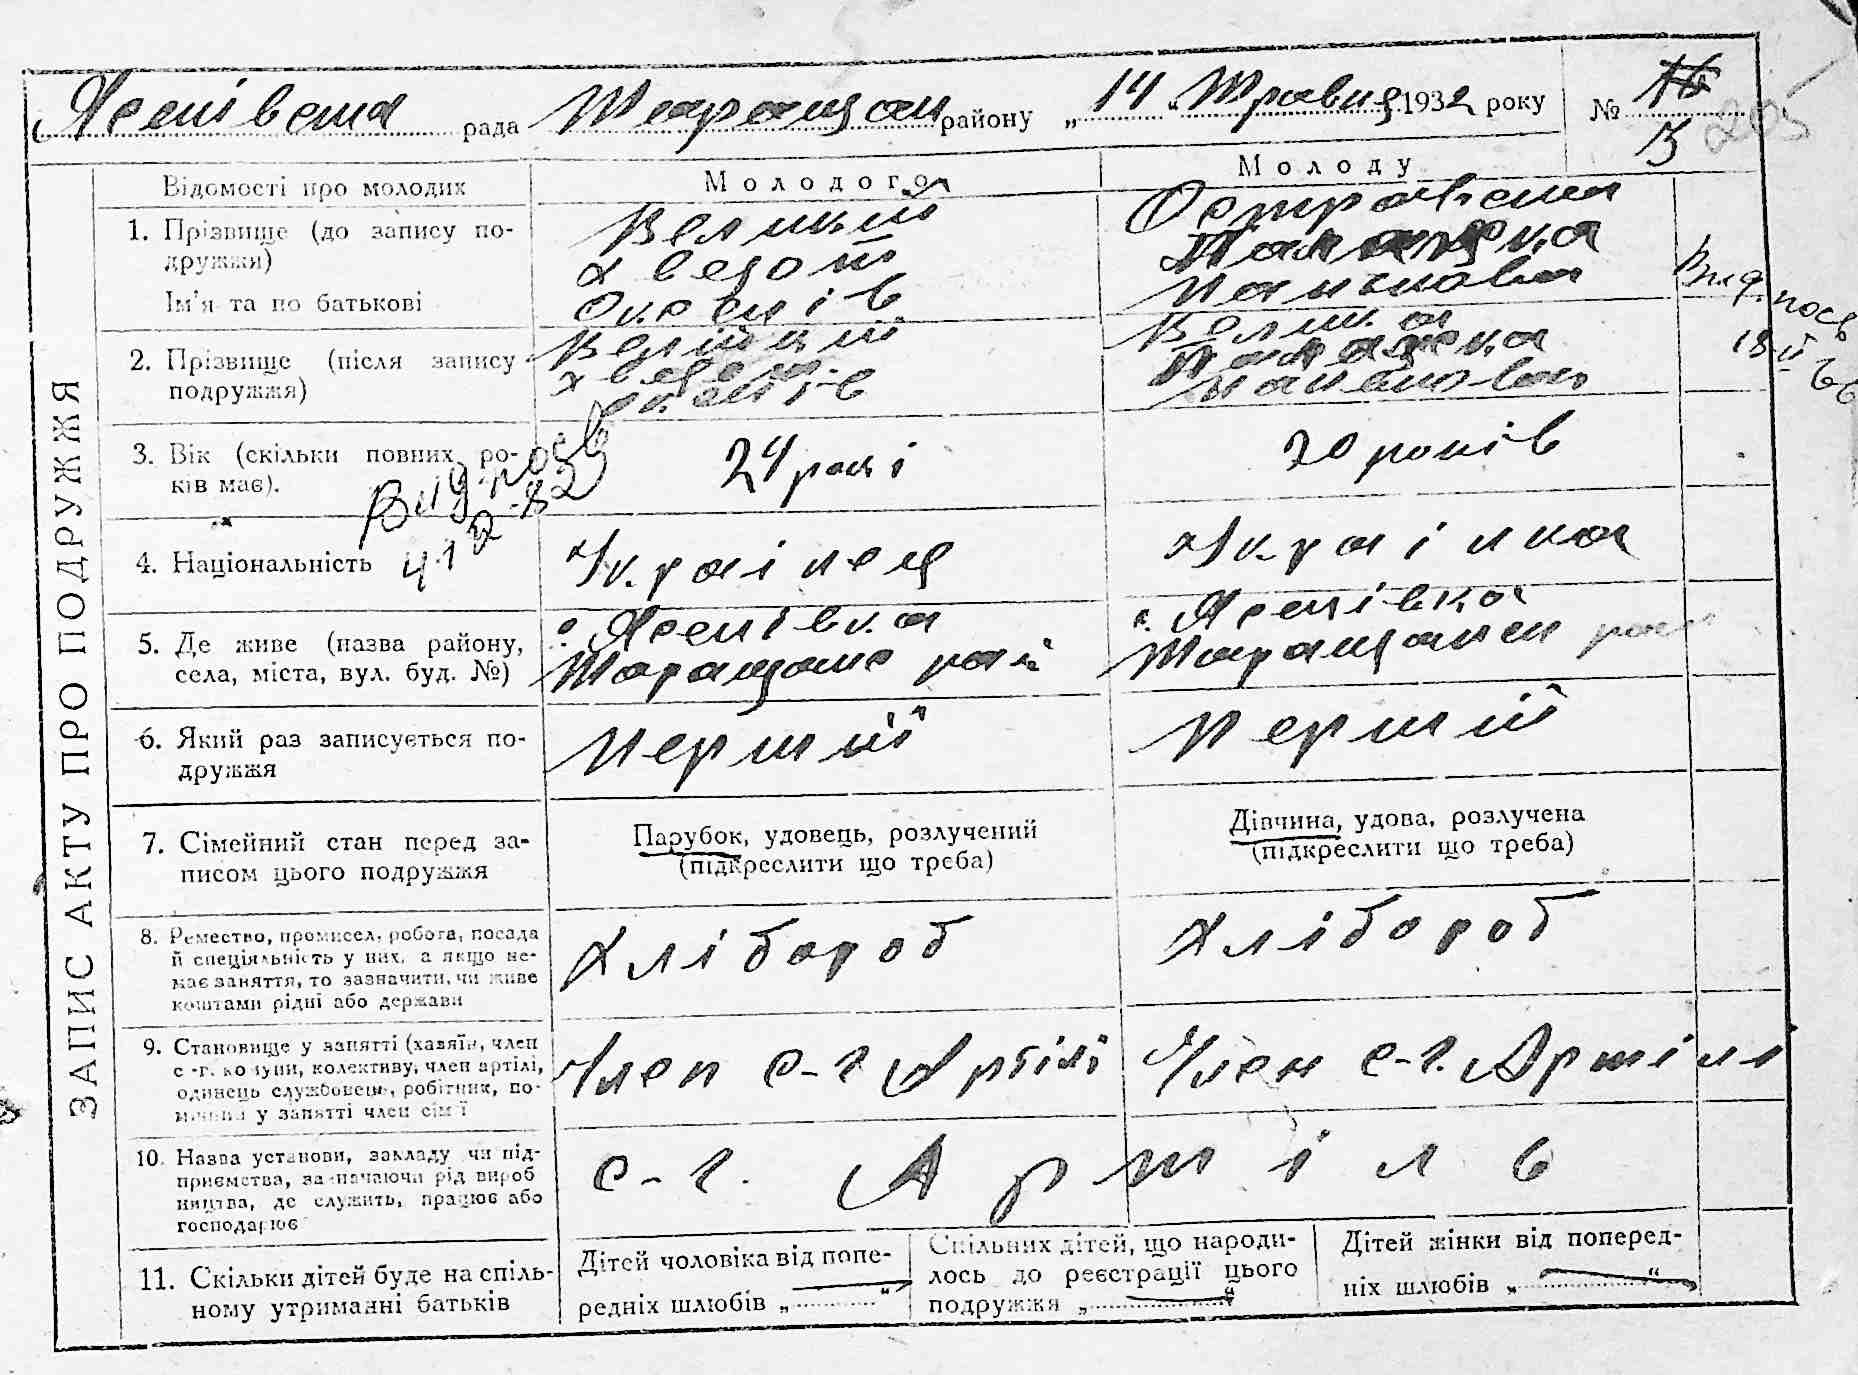 Лесівська рада Таращан району „14“ Травня 1932 року № 16
3
205
ЗАПИС АКТУ ПРО ПОДРУЖЖЯ
Відомості про молодих
Молодого
Молоду
1. Прізвище (до запису по-
дружжя)
Ім'я та по батькові
Великий
Хведот
Островська
Палажка
Панькова
2. Прізвище (після запису
подружжя)
Велика
Палажка
Вид. посв
3. Вік (скільки повних ро-
ків має).
24 рокі
20 років
Вид посв
4. Національність
Українец
Українка
5. Де живе (назва району,
села, міста, вул. буд. №)
с. Лесівка
Таращанс рай
с. Лесівка
Таращанск рай
6. Який раз записується по-
дружжя
Перший
Перший
7. Сімейний стан перед за-
писом цього подружжя
Парубок, удовець, розлучений
(підкреслити що треба)
Дівчина, удова, розлучена
(підкреслити що треба)
8. Ремество, промисел, робота, посада
й спеціяльність у них, а якщо не-
має заняття, то зазначити, чи живе
коштами рідні або держави
Хлібороб
Хлібороб
9. Становище у занятті (хазяїн, член
с-г. комуни, колективу, член артілі,
одинець службовець, робітник, по-
мічний у занятті член сім'ї
Член с-г Артілі
Член с-г. Артілі
10. Назва установи, закладу чи під-
приємства, зазначаючи рід вироб
ництва, де служить, працює або
господарює
с-г. Артіль
11. Скільки дітей буде на спіль-
ному утриманні батьків
Дітей чоловіка від попе-
редніх шлюбів „ “
Спільних дітей, що народи-
лось до реєстрації цього
подружжя „ “
Дітей жінки від поперед-
ніх шлюбів „ “